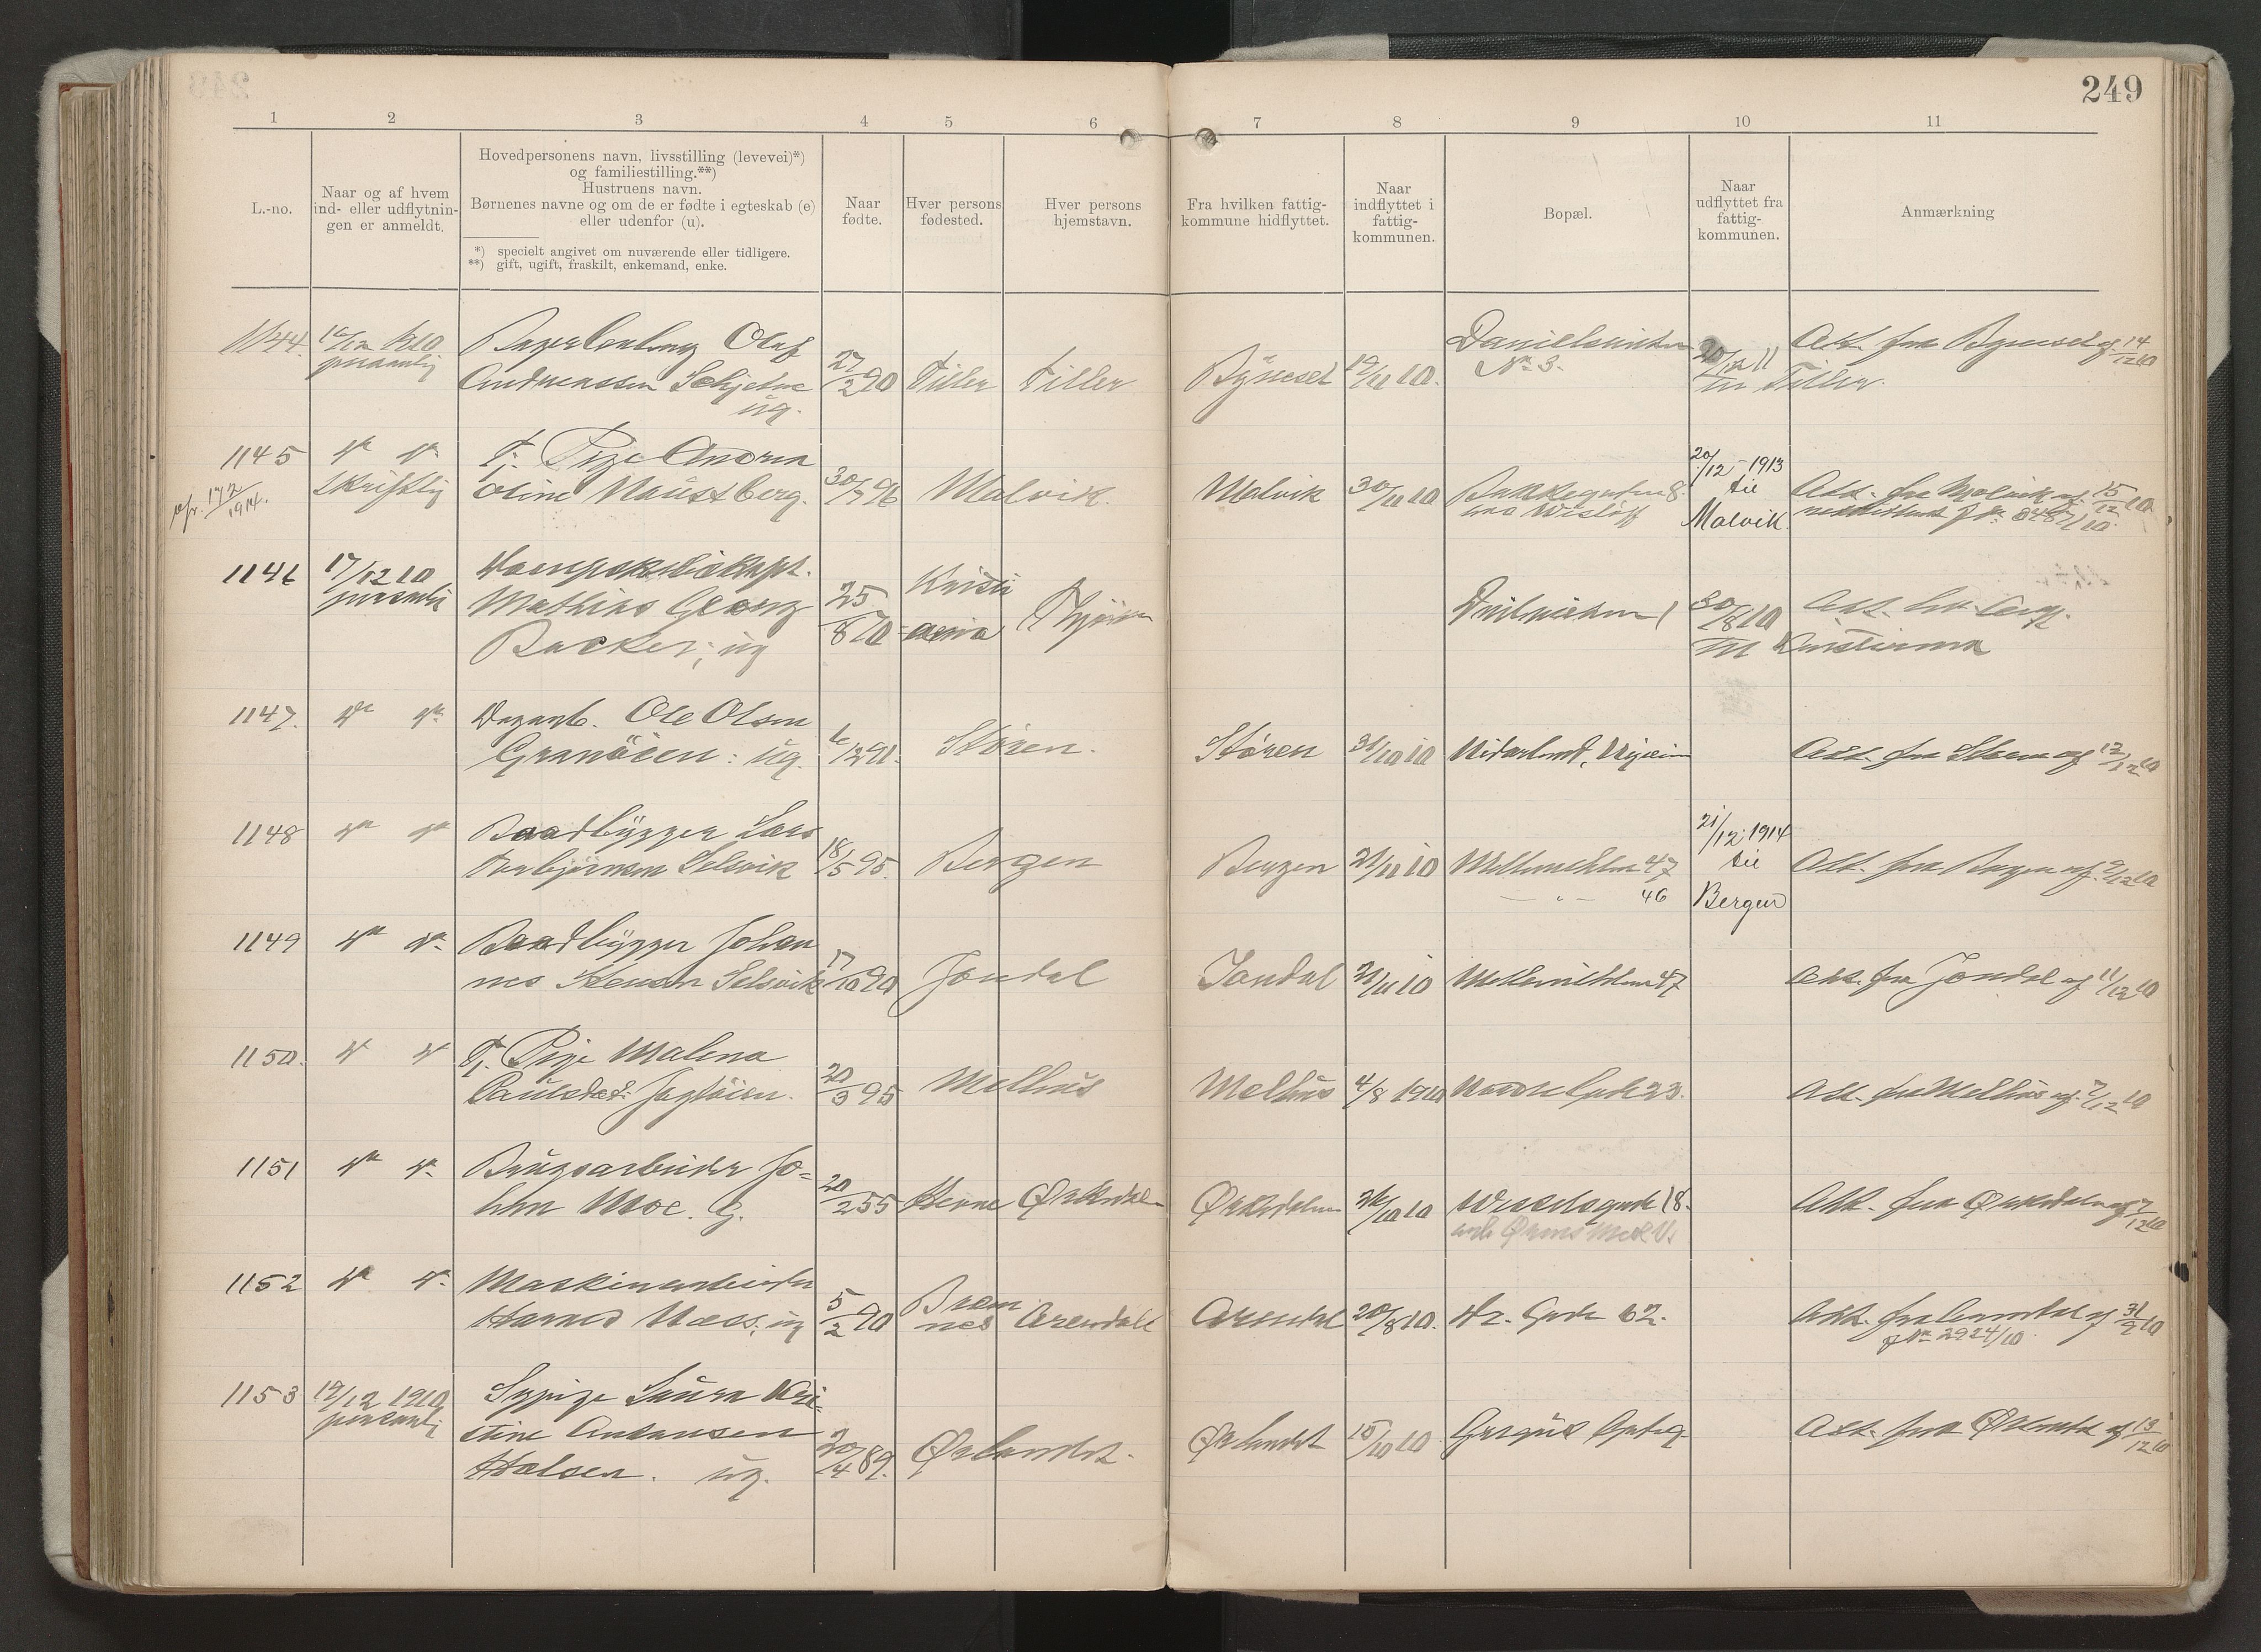 249
1 2 3 4 5 6 7 8 9 10 11
L.-no.
Naar og af hvem
ind- eller udflytnin-
gen er anmeldt.
Hovedpersonens navn, livsstilling (levevei)*)
og familiestilling.**)
Hustruens navn.
Børnenes navne og om de er fødte i egteskab (e)
eller udenfor (u).
*) specielt angivet om nuværende eller tidligere.
**) gift, ugift, fraskilt, enkemand, enke.
Naar
fødte.
Hver persons
fødested.
Hver persons
hjemstavn.
Fra hvilken fattig-
kommune hidflyttet.
Naar
indflyttet i
fattig-
kommunen.
Bopæl.
Naar
udflyttet fra
fattig-
kommunen.
Anmærkning
1144. 16/12 1910 Olaf
Andreassen
ug. 27/2 90 Tiller Tiller Byneset 19/11 10. No 3. 20/12 11 til Tiller. Att. fra Byneset af 14/12 10
1145 do do Tj. Pige Andrea
skriftlig Oline Naustberg. 30/7 96 Malvik. Malvik 30/11 10 Bakkegaten 8. 20/12 - 1913
til
Malvik. Att. fra Malvik af 15/12 10
1914.
1146 17/12 10
Mathias Georg
Backer; ug 25/8 70 Kristi
ania 30/8 10
til Kristiania
1147. do do Dagarb. Ole Olsen
Granöien: ug. 6/12 91. Støren. Støren 31/10 10 Att. fra Støren af 13/12 10
1148 do do Baadbygger Lars
Torbjørnsen Selsvik 18/5 95. Bergen Bergen 21/11 10 Mellemihlen 47
46 21/12 1914
til
Bergen Att. fra Bergen af 9/12 10
1149 do do Baadbygger Johan
nes Selsvik 17/10 90 Jondal Jondal 21/11 10 Mellemihlen 47 Att. fra Jondal af 11/12 10
1150. do do Tj. Pige Malena
Paulsdat. 20/3 95 Melhus Melhus 4/8 1910 Nordre Gade 23. Att. fra Melhus af 7/12 10
1151 do do Brugsarbeider Jo-
han Moe. G. 20/2 55 Orkedalen Orkedalen 26/10 10 Wesselsgade 18. Att. fra Orkedalen af 7/12 10
1152 do do Maskinarbeider
Harald Næss; ug 5/2 90 Brem
nes Arendal Arendal 20/8 10. Dr. Gade 62. Att. fra Arendal af 31/9 10
J No 2924/10
1153 19/12 1910 Sypige Laura Kri-
stine Antonsen
Halsen. ug. 20/4 89. Ørlandet. Ørlandet 15/10 10 Att. fra Ørlandet af 13/12 10